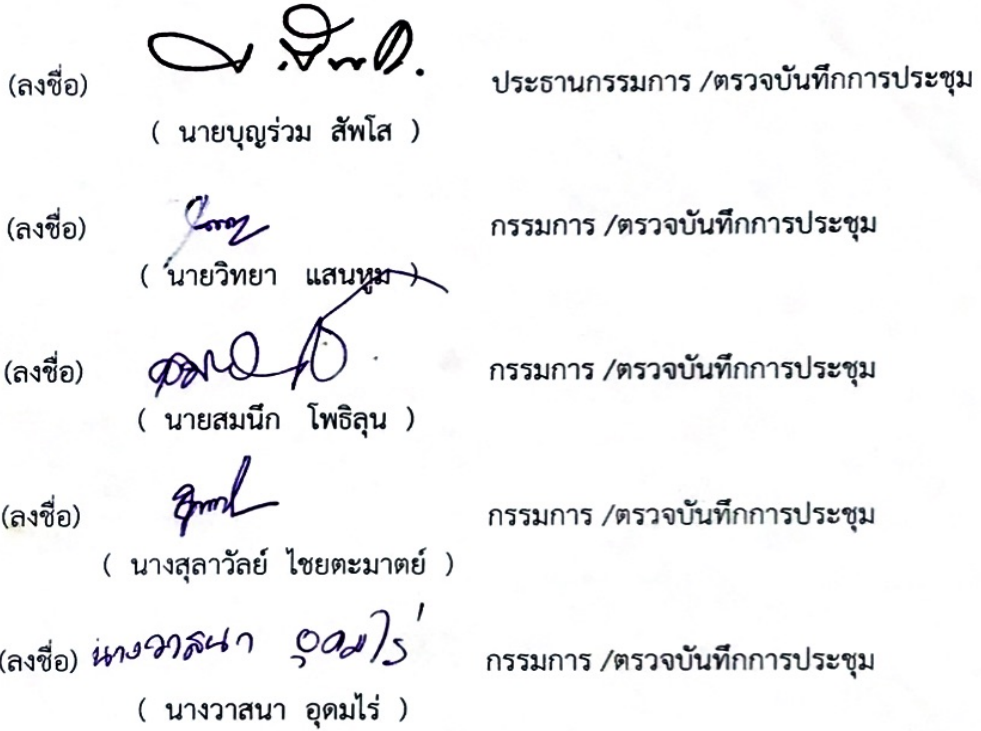 (ลงชื่อ) ประธานกรรมการ /ตรวจบันทึกการประชุม
( นายบุญร่วม สัพโส )
(ลงชื่อ) กรรมการ /ตรวจบันทึกการประชุม
( นายวิทยา แสนหูม )
(ลงชื่อ) กรรมการ /ตรวจบันทึกการประชุม
( นายสมนึก โพธิลุน )
(ลงชื่อ) กรรมการ /ตรวจบันทึกการประชุม
( นางสุลาวัลย์ ไชยตะมาตย์ )
(ลงชื่อ) นางวาสนา อุดมไร่ กรรมการ /ตรวจบันทึกการประชุม
( นางวาสนา อุดมไร่ )